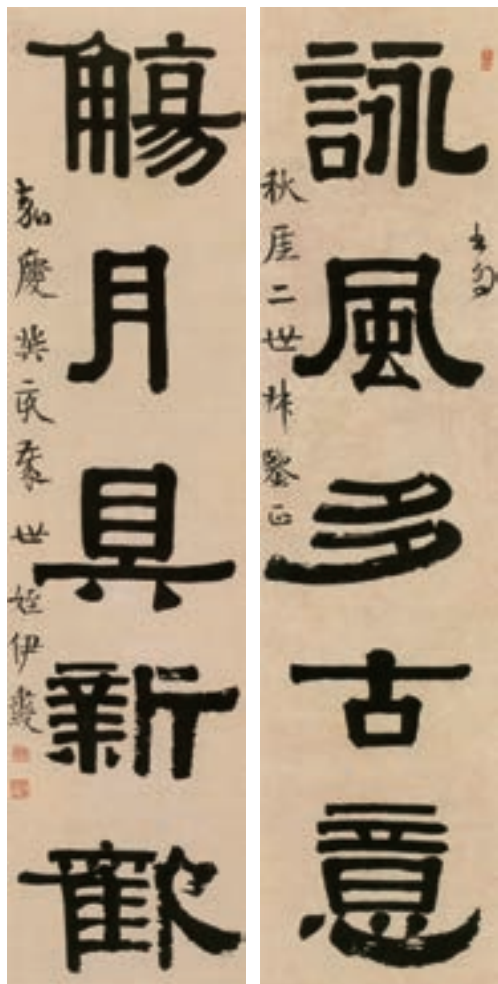 詠風多古意
秋厓二世叔鑒正
觴月具新歡
嘉慶癸亥世姪伊秉綬